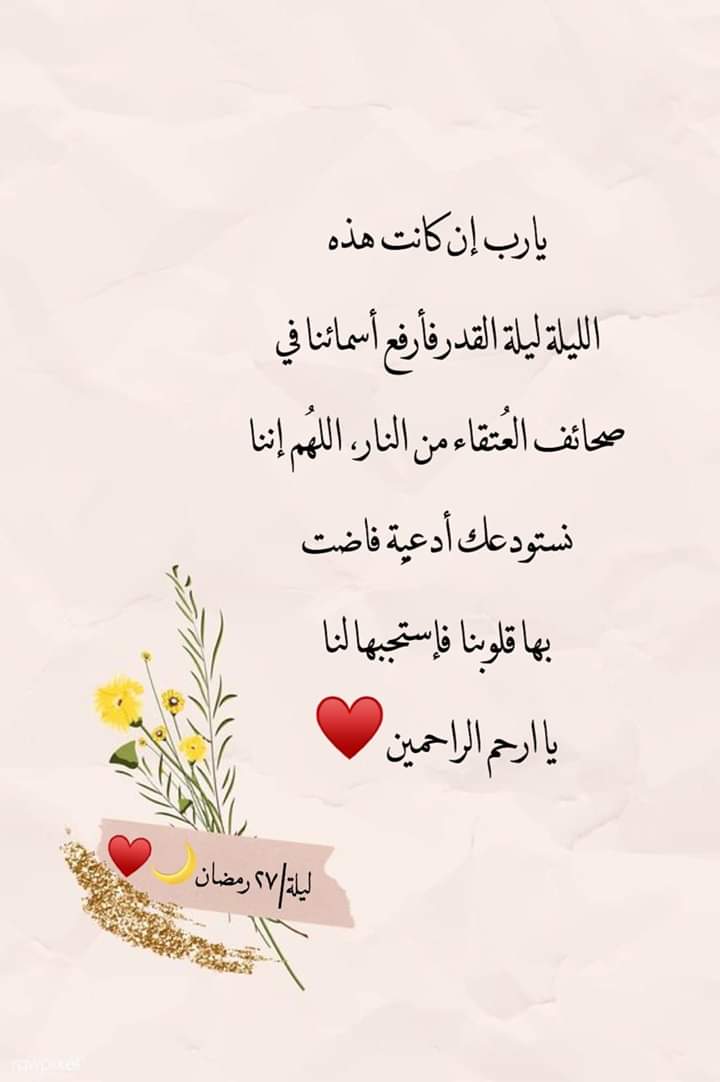 يارب إن كانت هذه
الليلة ليلة القدر فأرفع أسمائنا في
صحائف العُتقاء من النار، اللهُم إننا
نستودعك أدعية فاضت
بها قلوبنا فإستجبها لنا
يا ارحم الراحمين ♥️
ليلة/٢٧ رمضان🌙♥️
rawpixel